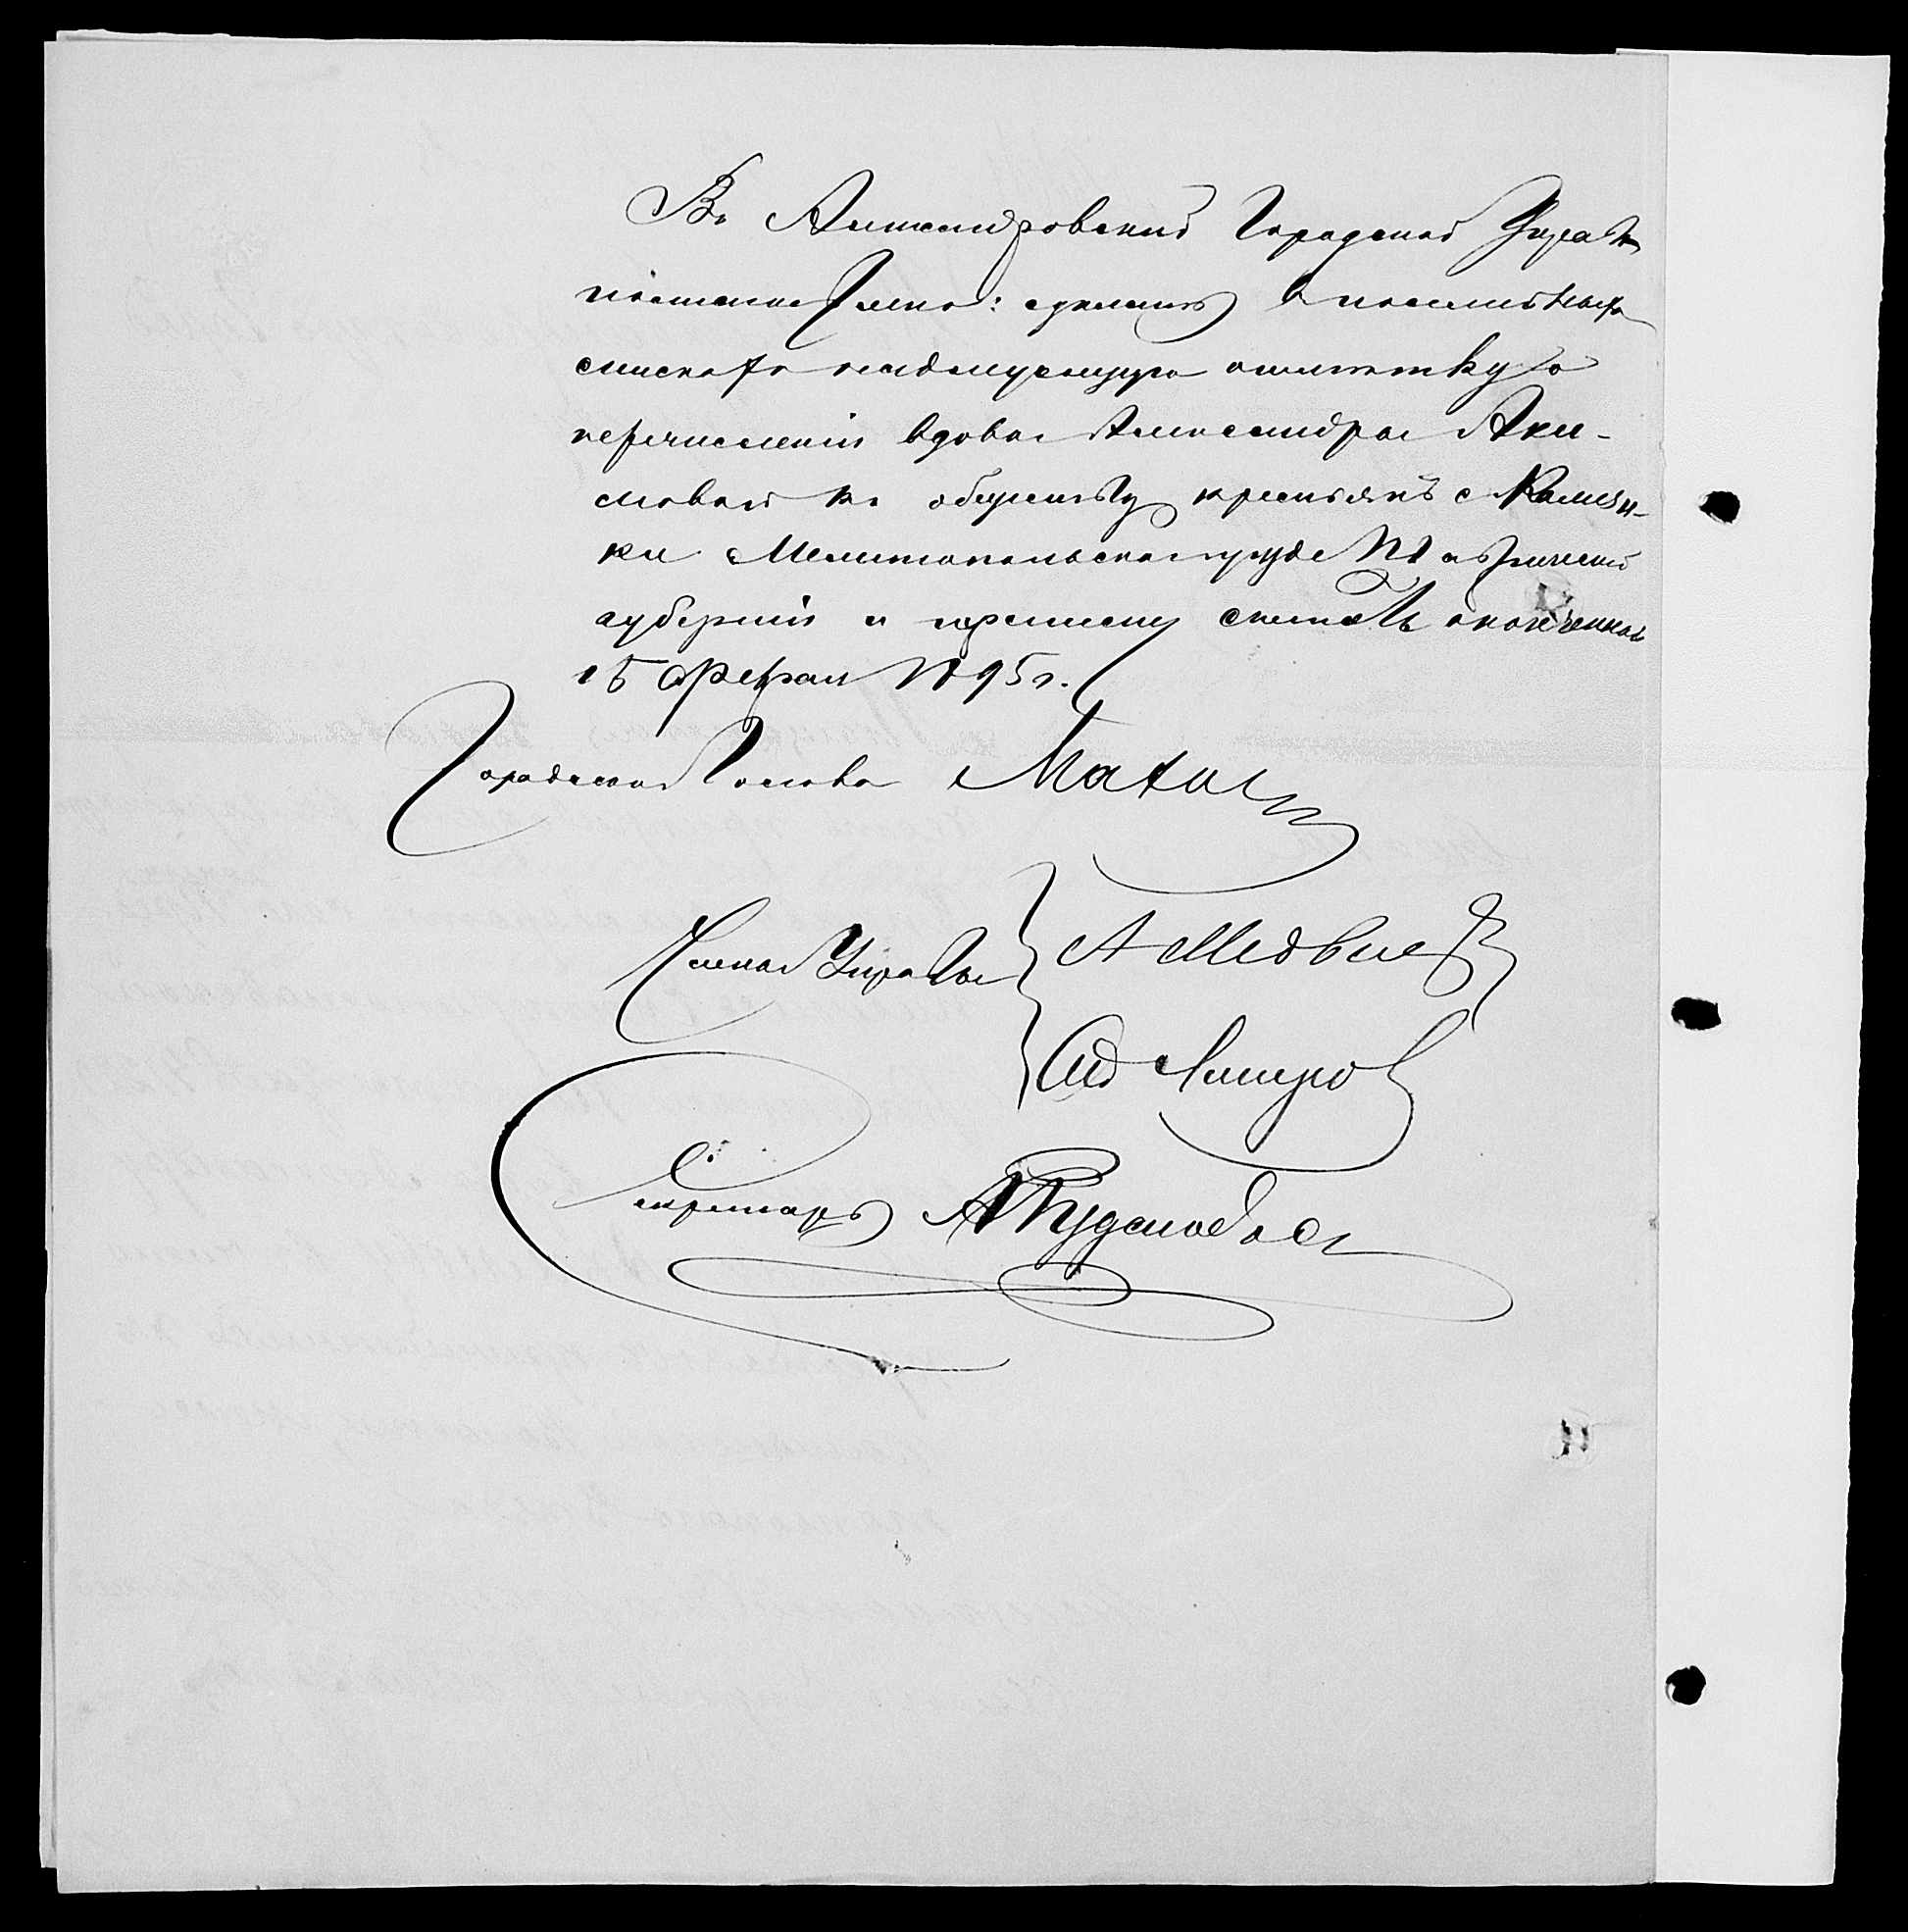 Въ Александровской Городской Управѣ
постановлено: сдѣлать въ посемейныхъ
спискахъ надлежащую отмѣтку о
перечисленіи вдовы Александры Аки-
мовой къ обществу крестьянъ с. Камен-
ки Мелитопольскаго уѣзда Таврической
губерніи и переписку считать оконченною
15 Феврал 1895 г.
Городской Голова Маха
Члены Управы
А Медвед
Сид
Секретарь А